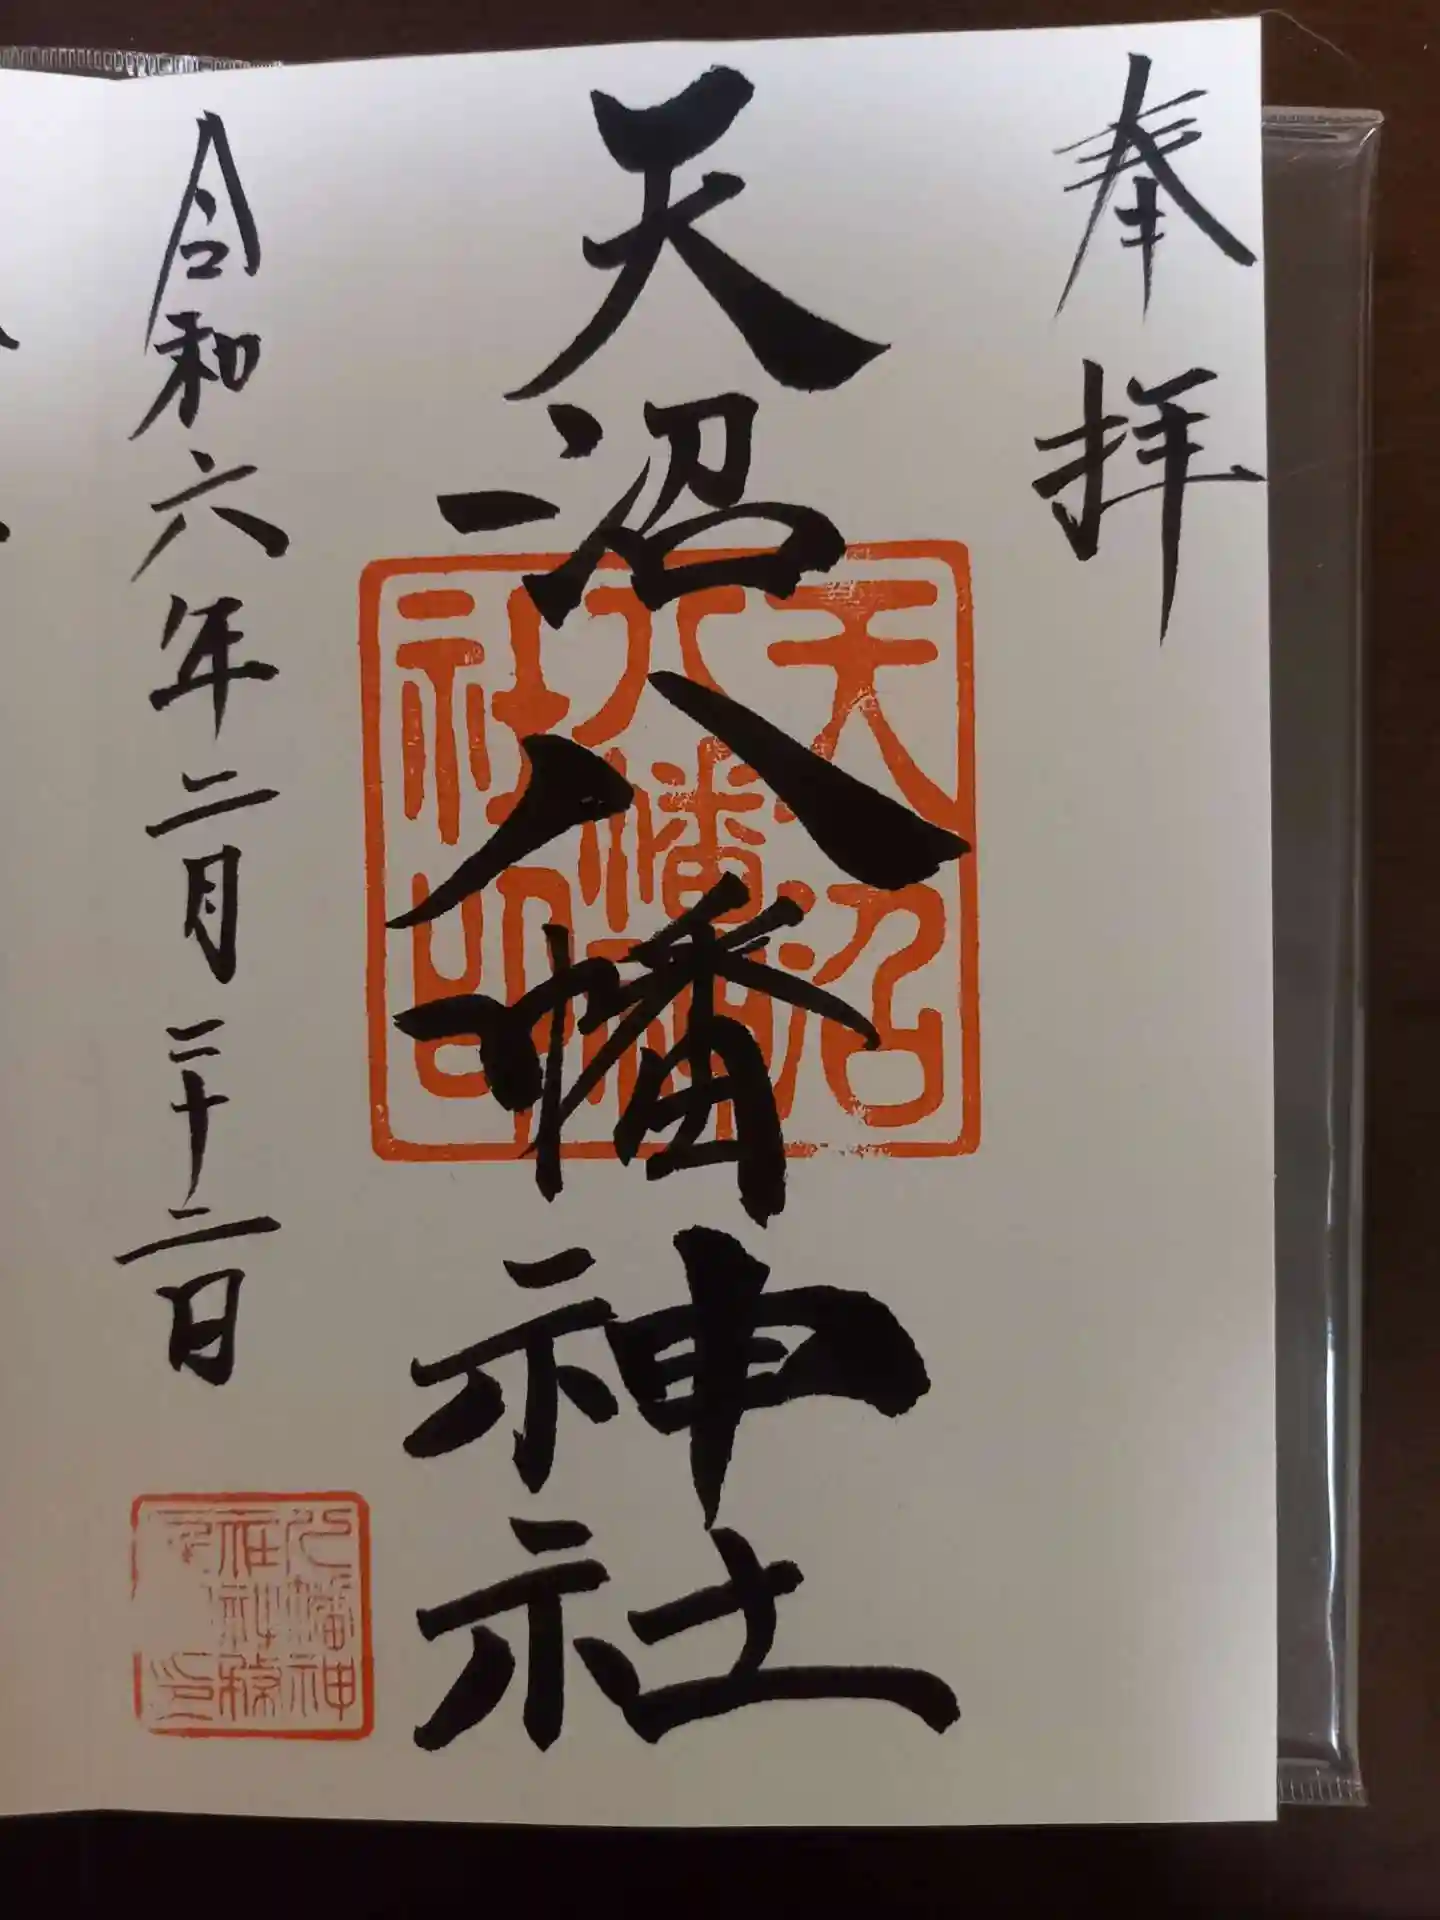 奉拝
天沼八幡神社
天沼
八幡神
社印
令和六年二月二十二日
八幡神
社社務
印